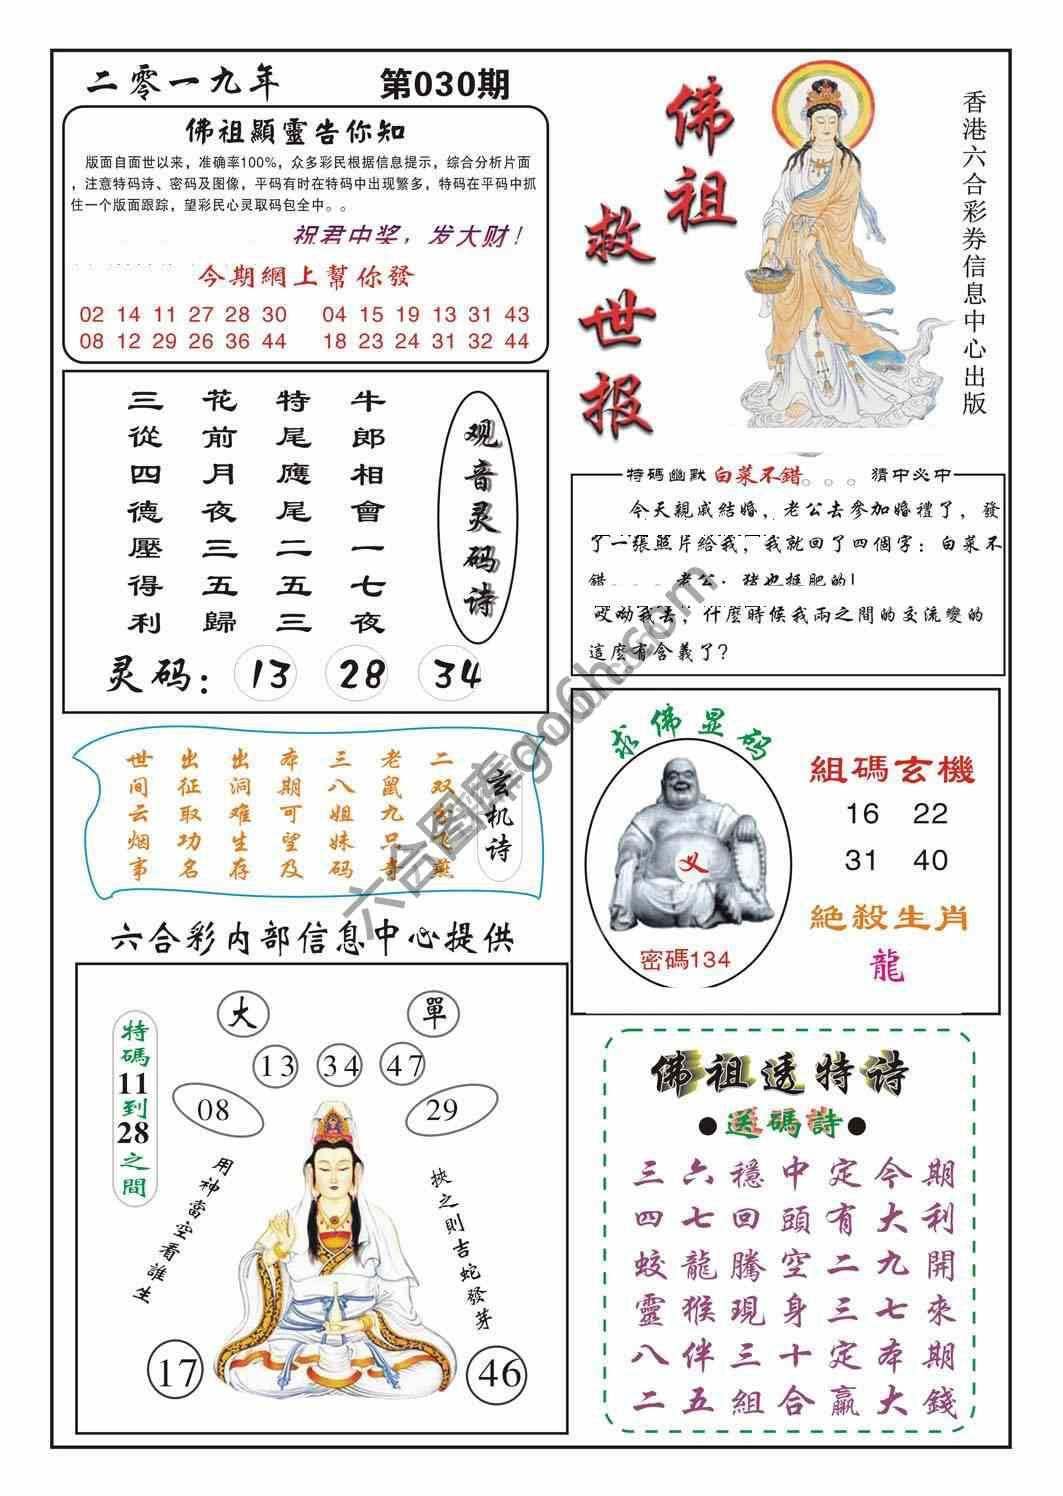 二零一九年
第030期
佛祖顯靈告你知
版面自面世以来，准确率100%，众多彩民根据信息提示，综合分析片面
，注意特码诗、密码及图像，平码有时在特码中出现繁多，特码在平码中抓
住一个版面跟踪，望彩民心灵取码包全中。。
祝君中奖，发大财！
今期網上幫你發
02 14 11 27 28 30 04 15 19 13 31 43
08 12 29 26 36 44 18 23 24 31 32 44
佛祖
救世报
香港六合彩券信息中心出版
观音灵码诗
牛郎相會一七夜
特尾應尾二五三
花前月夜三五歸
三從四德壓得利
灵码：13 28 34
特碼幽默 白菜不错。。。 猜中必中
今天親戚結婚，老公去參加婚禮了，發
了一張照片給我，我就回了四個字：白菜不
错....老公：猪也挺肥的！
哎呦我去，什麼時候我兩之間的交流變的
這麼有含義了？
玄机诗
二双
燕
老鼠九只奇
三八姐妹码
本期可望及
出洞难生存
出征取功名
世间云烟事
求佛显码
义
密碼134
組碼玄機
16 22
31 40
絕殺生肖
龍
六合彩内部信息中心提供
大
單
13 34 47
08
29
特碼11到28之間
用神當空看誰生
挾之則吉蛇發芽
17
46
佛祖透特诗
●送碼詩●
三六穩中定今期
四七回頭有大利
蛟龍騰空二九開
靈猴現身三七來
八伴三十定本期
二五組合贏大錢
六合图库go6h.com